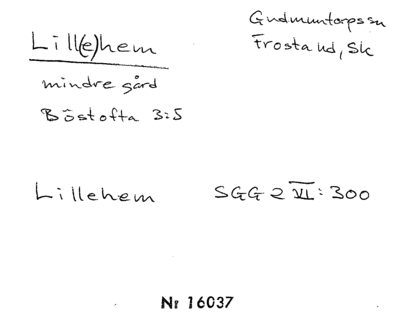 Lill(e)hem
mindre gård
Böstofta 3:5
Gudmuntorps sn
Frosta hd, Sk
Lillehem SGG 2 VI: 300
Nr 16037